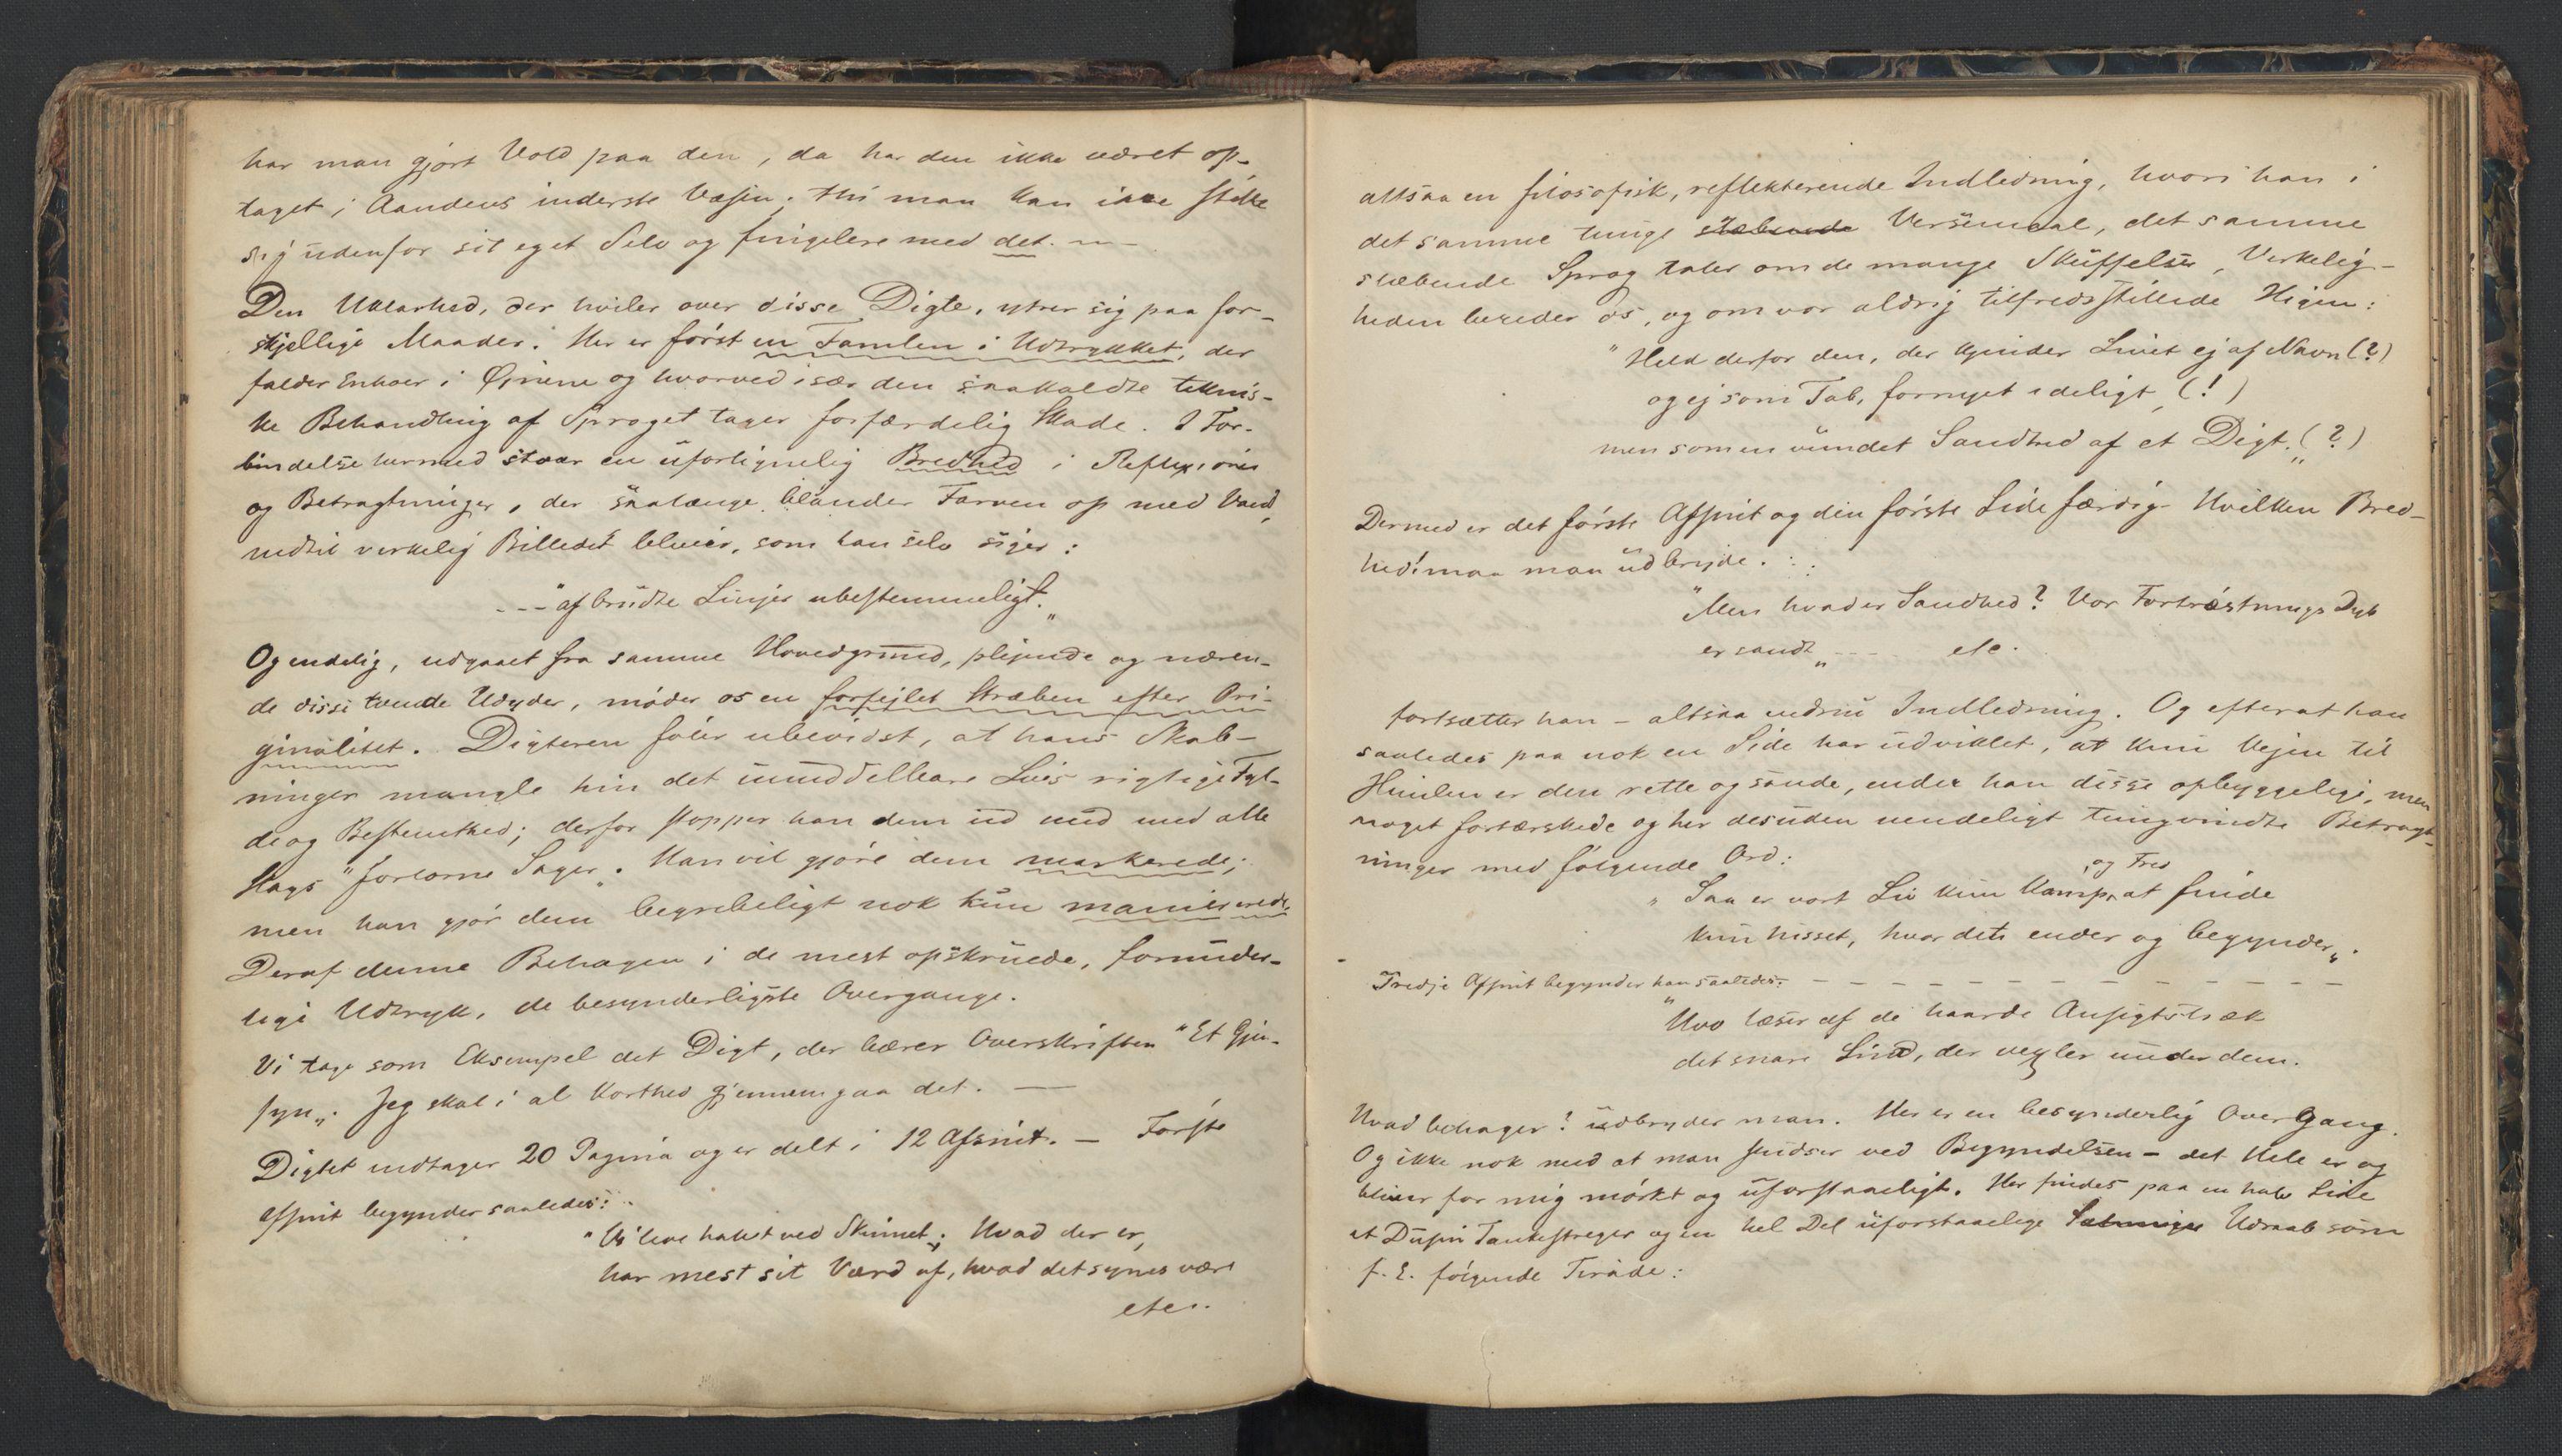 har man gjort Vold paa den, da har den ikke været op-
taget i Aandens inderste Væsen; thi man kan ikke stille
sig udenfor sit eget Selv og fingelere med det. —
Den Uklarhed, der hviler over disse Digte, ytrer sig paa for-
skjellige Maader. Her er først en Famlen i Udtrykket, der
falder Enhver i Øjnene og hvorved især den saakaldte teknis-
ke Behandling af Sproget tager forfærdelig Skade. I For-
bindelse hermed staar en uforlignelig Bredhed i Reflexioner
og Betragtninger, der saalænge blander Farven op med Vand,
indtil virkelig Billedet bliver, som han selv siger:
--- "afbrudte Linjer ubestemmeligt."
Og endelig, udgaaet fra samme Hovedgrund, plejende og næren-
de disse tvende Udyder, møder os en forfejlet Stræben efter Ori-
ginalitet. Digteren føler ubevidst, at hans Skab-
ninger mangle hin det umiddelbare Livs rigtige Fyl-
de og Bestemthed; derfor stopper han dem ud med alle
Slags "forlorne Sager". Han vil gjøre dem markerede;
men han gjør dem begribeligt nok kun maniererede.
Deraf denne Behagen i de mest opskruede, forunder-
lige Udtryk, de besynderligste Overgange.
Vi tage som Eksempel det Digt, der bærer Overskriften "Et Gjen-
syn". Jeg skal i al Korthed gjennemgaa det. —
Digtet indtager 20 Pagina og er delt i 12 Afsnit. — Første
Afsnit begynder saaledes:
"Vi leve halvt ved Skinnet; Hvad der er,
har mest sit Værd af, hvad det synes være
etc.
altsaa en filosofisk, reflekterende Indledning, hvori han i
det samme tunge slæbende Versemaal, det samme
slæbende Sprog taler om de mange Skuffelser, Virkelig-
heden bereder os, og om vor aldrig tilfredsstillede Higen:
"Held derfor den, der kjender Livet ej af Navn (?)
og ej som Tab, fornyet ideligt, (!)
men som en vundet Sandhed af et Digt." (?)
Dermed er det første Afsnit og den første Side færdig. Hvilken Bred-
hed! maa man udbryde. :
"Men hvad er Sandhed? Vor Fortrøstnings Dyb
er sandt" --- etc.
fortsætter han – altsaa endnu Indledning. Og efterat han
saaledes paa nok en Side har udviklet, at kun Vejen til
Himlen er den rette og sande, ender han disse opbyggelige, men
noget fortærskede og her desuden uendeligt tungvindte Betragt-
ninger med følgende Ord:
og Fred
"Saa er vort Liv kun Kamp, at finde
kun hisset, hvor det ender og begynder".
Tredje Afsnit begynder han saaledes: – – – – – – – – – – – –
"Hvo læser af de haarde Ansigtstræk
det snare Sind, der vexler under dem.
Hvad behager? udbryder man. Her er en besynderlig Overgang.
Og ikke nok med at man studser ved Begyndelsen – det Hele er og
bliver for mig mørkt og uforstaaeligt. Her findes paa en halv Side
et Dusin Tankestreger og en hel Del uforstaaelige Sætninger Udraab som
f. E. følgende Tirade: